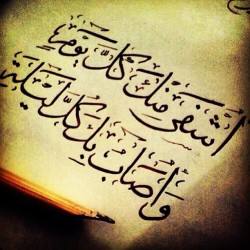 أشفى منك كل يوم
وأصاب بك كل ليلة